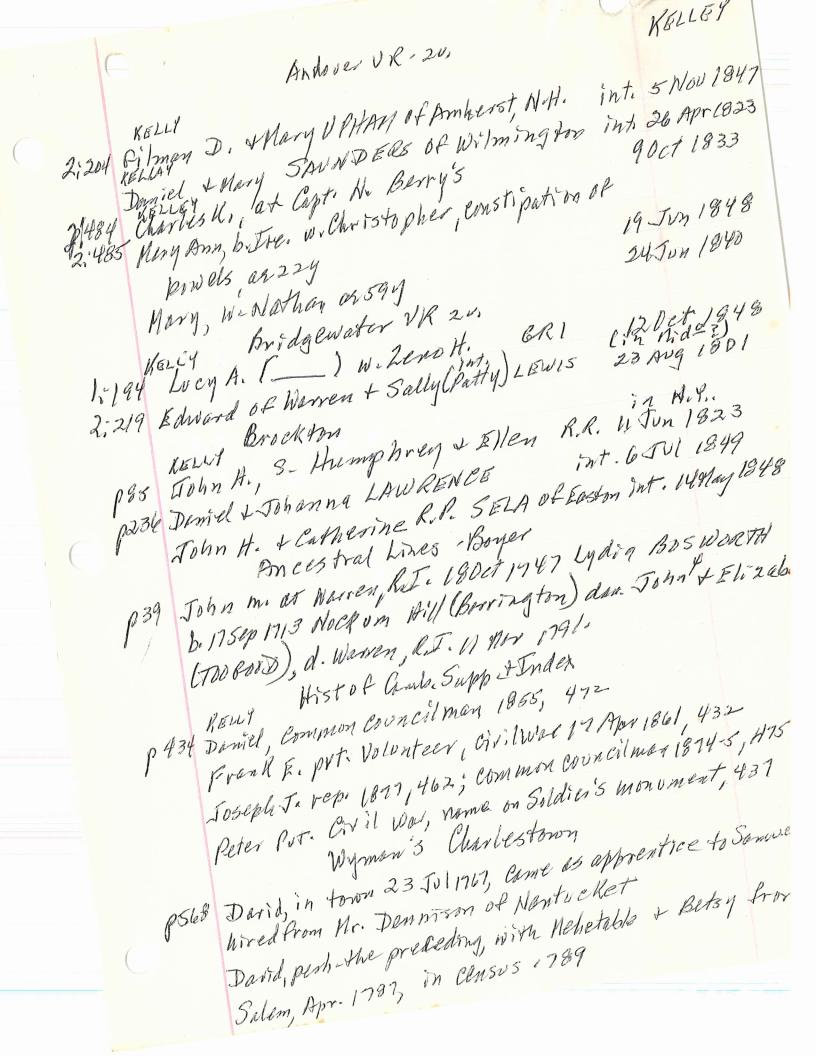 KELLEY
Andover VR - 2v.
KELLY
2:204 Gilman D. + Mary UPHAM of Amherst, N.H. int. 5 Nov 1847
KELLAY
Daniel + Mary SAUNDERS of Wilmington int. 26 Apr 1823
KELLEY
2:484 Charles K., at Capt. N. Berry's 9 Oct 1833
2:485 Mary Ann, b. Ire. w. Christopher, constipation of
bowels, ae 22y 19 Jun 1848
Mary, w. Nathan ae 59y 24 Jun 1840
Bridgewater VR 2v.
KELLY
1:194 Lucy A. (____) w. Zeno H. GR1 12 Oct 1848
(in Mid?)
2:219 Edward of Warren + Sally (int. Patty) LEWIS 23 Aug 1801
Brockton
KELLY in N.Y..
p85 John H., s. Humphrey + Ellen R.R. 11 Jun 1823
p236 Daniel + Johanna LAWRENCE int. 6 Jul 1849
John H. + Catherine R.P. SELA of Easton int. 14 May 1848
Ancestral Lines - Boyer
p39 John m. at Warren, R.I. 18 Oct 1747 Lydia BOSWORTH
b. 17 Sep 1713 Nockum Hill (Barrington) dau. John4 + Elizab
(TOOGOOD), d. Warren, R.I. 11 Mar 1791.
Hist of Camb. Supp + Index
KELLY
p434 Daniel, common councilman 1855, 472
Frank E. pvt. Volunteer, Civil War 17 Apr 1861, 432
Joseph J. rep. 1877, 462; common councilman 1874-5, 475
Peter Pvt. Civil War, name on Soldier's monument, 437
Wyman's Charlestown
p568 David, in town 23 Jul 1767, came as apprentice to Samue
hired from Mr. Dennison of Nantucket
David, perh. the preceding, with Mehetable + Betsy from
Salem, Apr. 1787, in census 1789